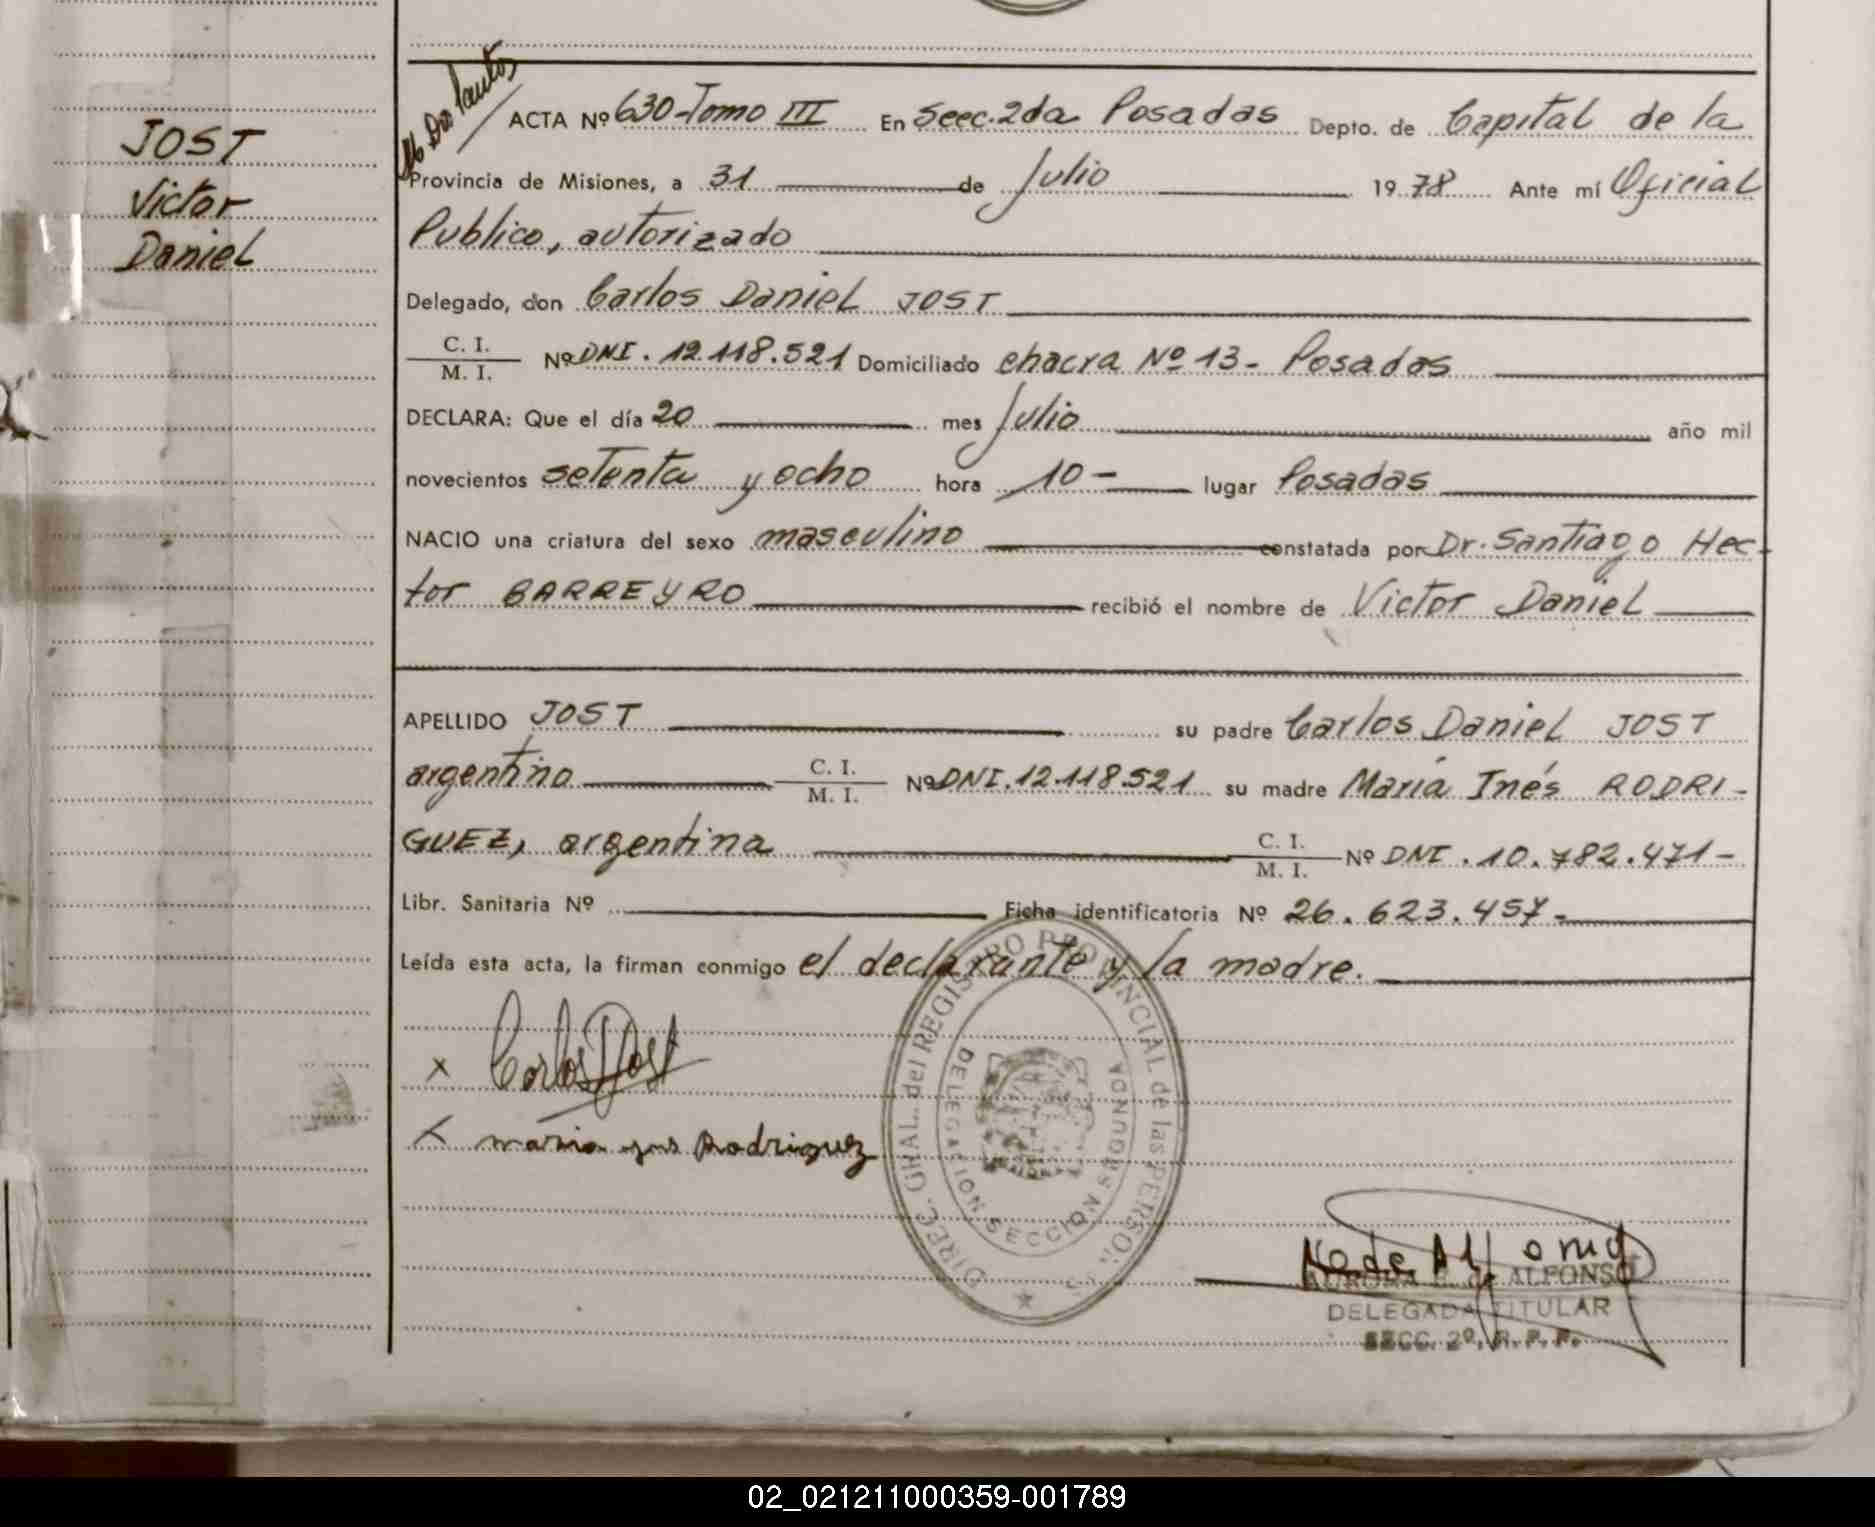 JOST
Victor
Daniel
ACTA Nº 630-Tomo III En Secc. 2da Posadas Depto. de Capital de la
Provincia de Misiones, a 31 de Julio 19 78 Ante mí Oficial
Publico, autorizado
Delegado, don Carlos Daniel JOST
C. I.
M. I.
Nº DNI. 12.118.521 Domiciliado chacra Nº 13- Posadas
DECLARA: Que el día 20 mes Julio año mil
novecientos setenta y ocho hora 10- lugar Posadas
NACIO una criatura del sexo masculino constatada por Dr. Santiago Hec-
tor BARREYRO recibió el nombre de Victor Daniel
APELLIDO JOST su padre Carlos Daniel JOST
argentino C. I.
M. I.
Nº DNI. 12.118.521 su madre María Inés RODRI-
GUEZ, argentina C. I.
M. I.
Nº DNI. 10.782.471-
Libr. Sanitaria Nº Ficha identificatoria Nº 26.623.457-
Leída esta acta, la firman conmigo el declarante y la madre.
x Carlos D Jost
x maria ynes Rodriguez
DIREC. GRAL. del REGISTRO PROVINCIAL de las PERSONAS
DELEGACION SECCION SEGUNDA
AURORA E. de ALFONSO
DELEGADA TITULAR
SECC. 2º, R. P. P.
02_021211000359-001789